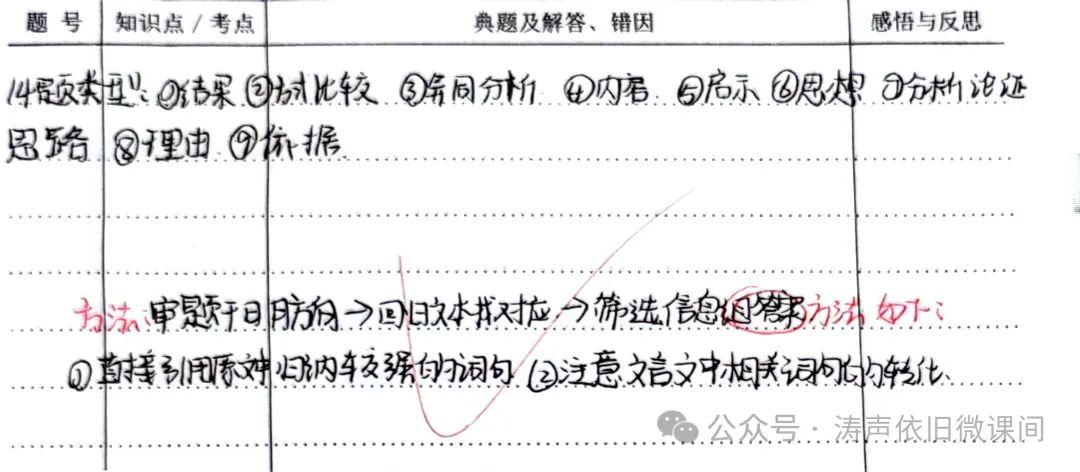 题号 知识点/考点 典题及解答、错因 感悟与反思
14题类型:①结果②方式比较 ③异同分析 ④内容 ⑤启示⑥思想⑦分析论证
思路 ⑧理由 ⑨依据
方法:审题干日月方向→回归文本找对应→筛选信息组答案方法如下:
①直接引用原文中归纳车交强的词句 ②注意文言文中相关词句的转化、
公众号·涛声依旧微课间